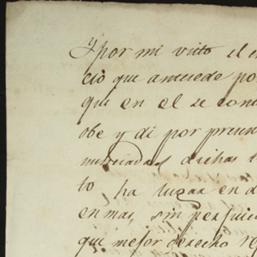 Y por mi visto el
cio que antecede po
que en el se con
obe y di por presen
dichas
to ha lugar en d
en mas, sin perjuici
que mejor derecho